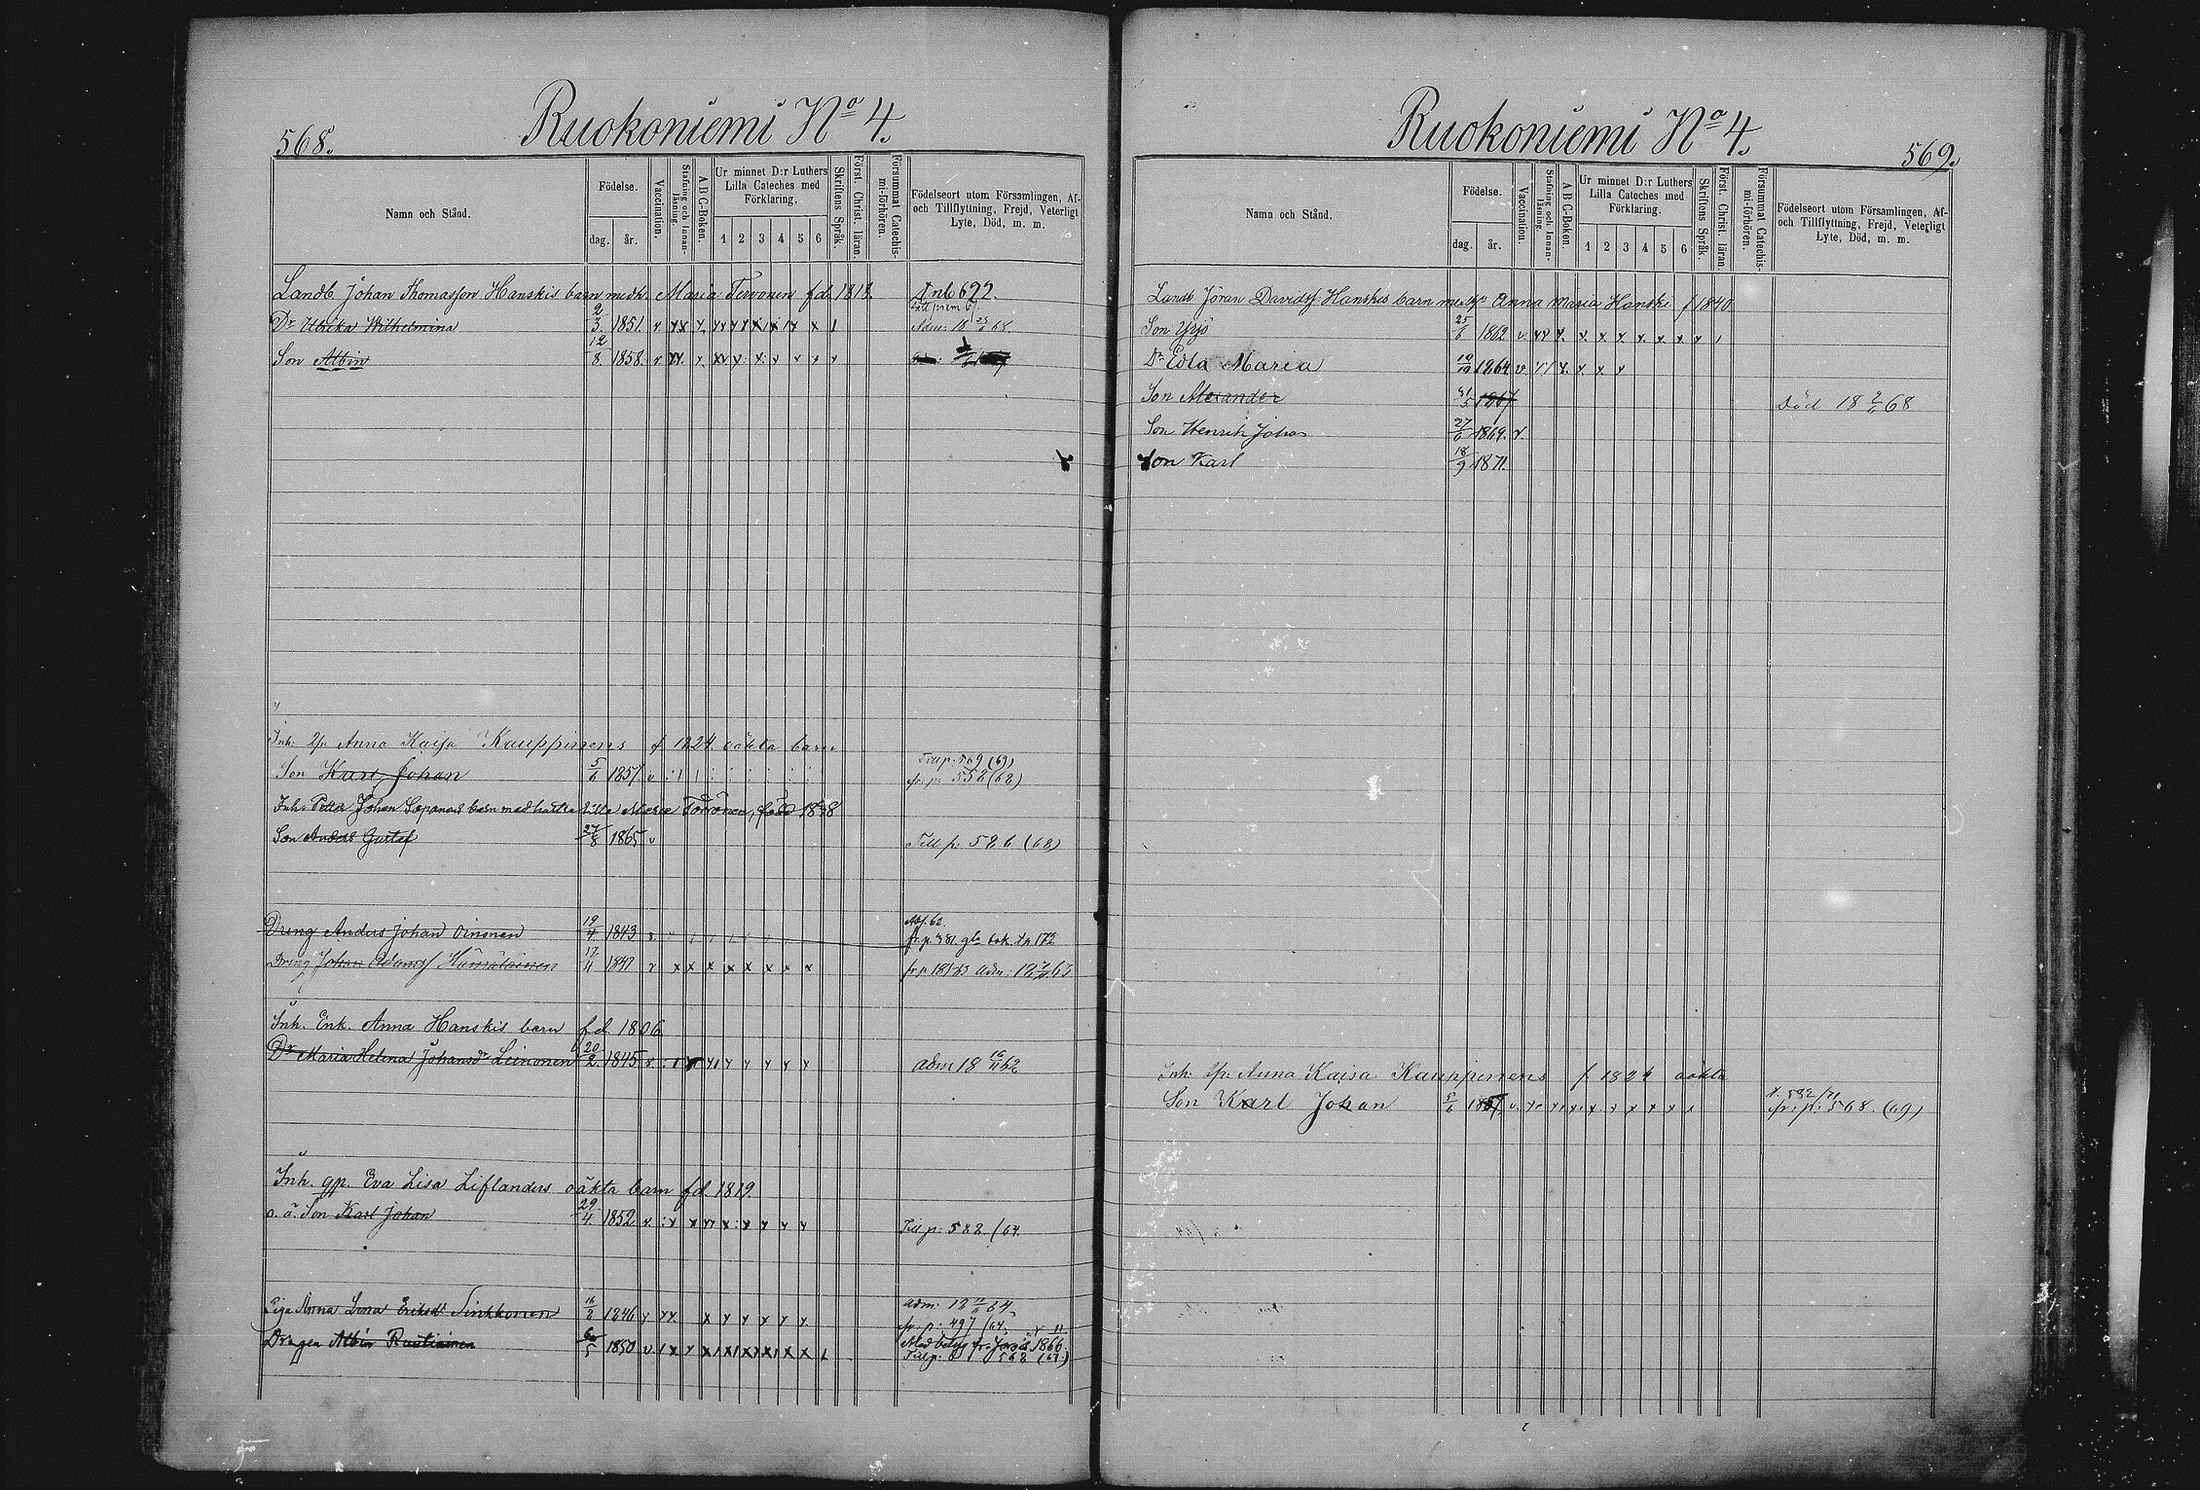 568.
Ruokoniemi No 4.
Namn och Stånd.
Födelse.
dag. år.
Vaccination.
Stafning och Innanläsning.
A B C-Boken.
Ur minnet D:r Luthers Lilla Cateches med Förklaring.
1 2 3 4 5 6
Skriftens Språk.
Först. Christ. läran.
Försummat Catechismi-förhören.
Födelseort utom Församlingen, Af- och Tillflyttning, Frejd, Veterligt Lyte, Död, m. m.
Landb. Johan Thomasson Hanskis barn med h. Maria Tervonen fd. 1818. 622.
Dr Ulrika Wilhelmina 2/3. 1851. Adm: 18 68.
Son Albin 12/8 1858.
Inh. Anna Kaisa Kauppinens f 1824 oäkta barn
Till p. 569 (69)
Son Karl Johan 5/6 1857 v fr. p. 558 (68)
Inh. Petter Johan Sopanens barn med hustru Ulla Maria Törrönen, född 1848
Son Anders Gustaf 27/8 1865 v Till p. 526 (68)
Abs. 62.
Dreng Anders Johan Oinonen 19/4 1843 fr. p. 381 gla bok. 172
Dreng Johan Adamss Hämäläinen 17/4 1847
Inh. Enk. Anna Hanskis barn fd. 1806
Dr Maria Helena Johansdr Leinonen 20/2. 1845 adm 18 16/11 62
Inh. gp. Eva Lisa Liflanders oäkta barn fd. 1819.
o. ä. Son Karl Johan 29/4 1852 Till p: 588. (64.
Piga Anna Lena Eriksdr Sinkkonen 16/8 1846 adm: 64
fr. p: 497 (64.
Drengen Albin Rautiainen 1850 Med betyg fr. Jorois 1866.
Till p: 568 (67)
Ruokoniemi No 4.
569.
Namn och Stånd.
Födelse.
dag. år.
Vaccination.
Stafning och Innanläsning.
A B C-Boken.
Ur minnet D:r Luthers Lilla Cateches med Förklaring.
1 2 3 4 5 6
Skriftens Språk.
Först. Christ. läran.
Försummat Catechismi-förhören.
Födelseort utom Församlingen, Af- och Tillflyttning, Frejd, Veterligt Lyte, Död, m. m.
Landb Jöran Davidss: Hanskis barn med h. Anna Maria Hanski f 1840
Son Yrjö 25/6 1862
Dr Edla Maria 10/10 1864
Son Alexander 31/5 1867 Död 18 68
Son Henrik Johan 27/6 1869. v.
Son Karl 18/9 1871.
Inh. Anna Kaisa Kauppinens f 1824 oäkta
t. 582/71
Son Karl Johan 5/6 1857 fr: p: 568. (69)